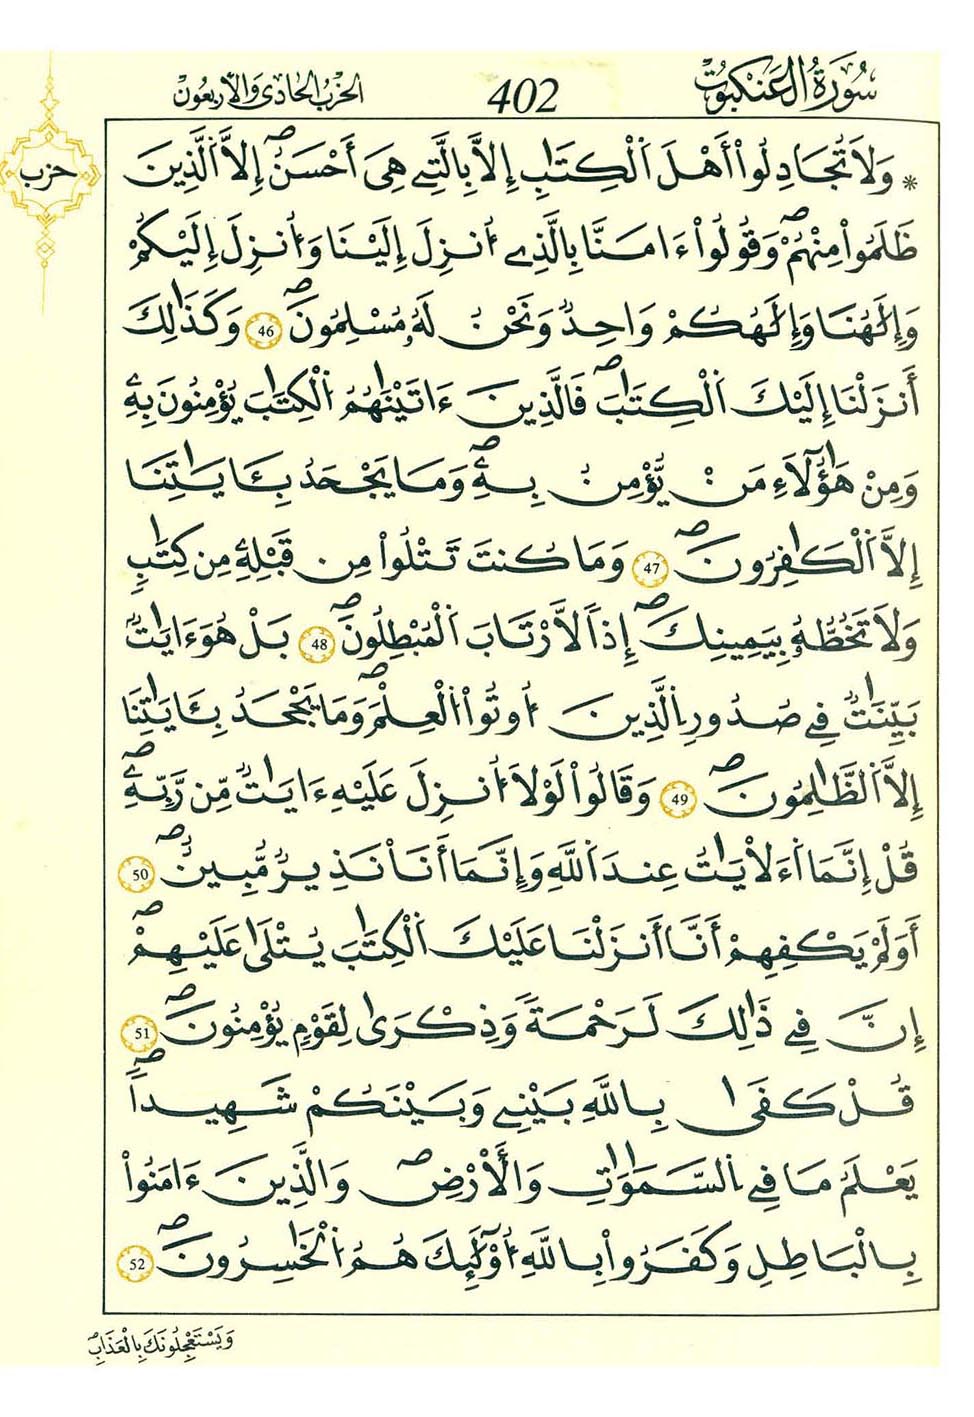 سُورَةُ الْعَنكَبُوتِ
402
الحِزْبُ الْحَادِي وَالأَرْبَعُونَ
حزب
* وَلاَ تُجَٰدِلُوٓاْ أَهْلَ اَ۬لْكِتَٰبِ إِلاَّ بِالتِے هِيَ أَحْسَنُ إِلاَّ اَ۬لذِينَ
ظَلَمُواْ مِنْهُمْ وَقُولُوٓاْ ءَامَنَّا بِالذِے أُنزِلَ إِلَيْنَا وَأُنزِلَ إِلَيْكُمْ
وَإِلَٰهُنَا وَإِلَٰهُكُمْ وَٰحِدٞ وَنَحْنُ لَهُۥ مُسْلِمُونَ 46 وَكَذَٰلِكَ
أَنزَلْنَا إِلَيْكَ اَ۬لْكِتَٰبَ فَالذِينَ ءَاتَيْنَٰهُمُ اُ۬لْكِتَٰبَ يُؤْمِنُونَ بِهِۦ
وَمِنْ هَٰٓؤُلَآءِ مَنْ يُّؤْمِنُ بِهِۦ وَمَا يَجْحَدُ بِـَٔايَٰتِنَا
إِلاَّ اَ۬لْكَٰفِرُونَ 47 وَمَا كُنتَ تَتْلُواْ مِن قَبْلِهِۦ مِن كِتَٰبٖ
وَلاَ تَخُطُّهُۥ بِيَمِينِكَ إِذاٗ لاَّرْتَابَ اَ۬لْمُبْطِلُونَ 48 بَلْ هُوَ ءَايَٰتُۢ
بَيِّنَٰتٞ فِے صُدُورِ اِ۬لذِينَ أُوتُواْ اُ۬لْعِلْمَ وَمَا يَجْحَدُ بِـَٔايَٰتِنَا
إِلاَّ اَ۬لظَّٰلِمُونَ 49 وَقَالُواْ لَوْلاَ أُنزِلَ عَلَيْهِ ءَايَٰتٞ مِّن رَّبِّهِۦ
قُلْ إِنَّمَا اَ۬ءَلاْيَٰتُ عِندَ اَ۬للَّهِ وَإِنَّمَا أَنَا نَذِيرٞ مُّبِينٌ 50
أَوَلَمْ يَكْفِهِمْ أَنَّا أَنزَلْنَا عَلَيْكَ اَ۬لْكِتَٰبَ يُتْلَىٰ عَلَيْهِمْ
إِنَّ فِے ذَٰلِكَ لَرَحْمَةٗ وَذِكْرَىٰ لِقَوْمٖ يُؤْمِنُونَ 51
قُلْ كَفَىٰ بِاللَّهِ بَيْنِے وَبَيْنَكُمْ شَهِيداٗ
يَعْلَمُ مَا فِے اِ۬لسَّمَٰوَٰتِ وَالْأَرْضِ وَالذِينَ ءَامَنُواْ
بِالْبَٰطِلِ وَكَفَرُواْ بِاللَّهِ أُوْلَٰٓئِكَ هُمُ اُ۬لْخَٰسِرُونَ 52
وَيَسْتَعْجِلُونَكَ بِالْعَذَابِ